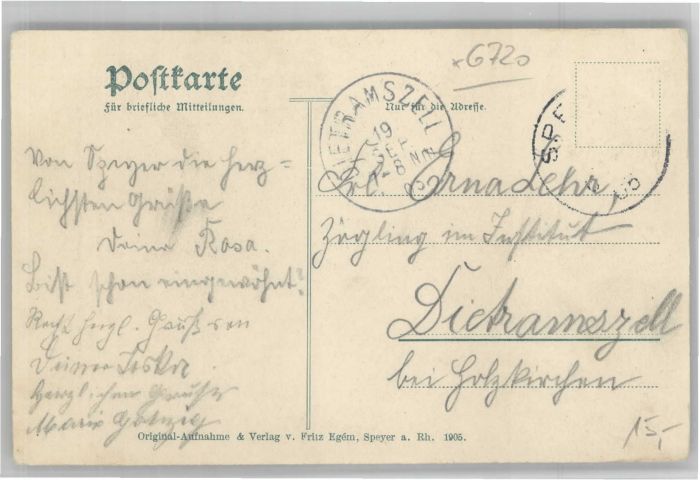 Postkarte
Für briefliche Mitteilungen.
Nur für die Adresse.
*6720
DIETRAMSZELL
19 SEP
SPE
Von Speyer die herz=
lichsten Grüße
Deine Rosa.
Bist schon eingewöhnt?
Recht herzl. Gruß von
Deiner
Herzlichen Gruß
Marie
Frl. Erna Lehr,
Zögling im Institut
Dietramszell
bei Holzkirchen
15,-
Original-Aufnahme & Verlag v. Fritz Egém, Speyer a. Rh. 1905.